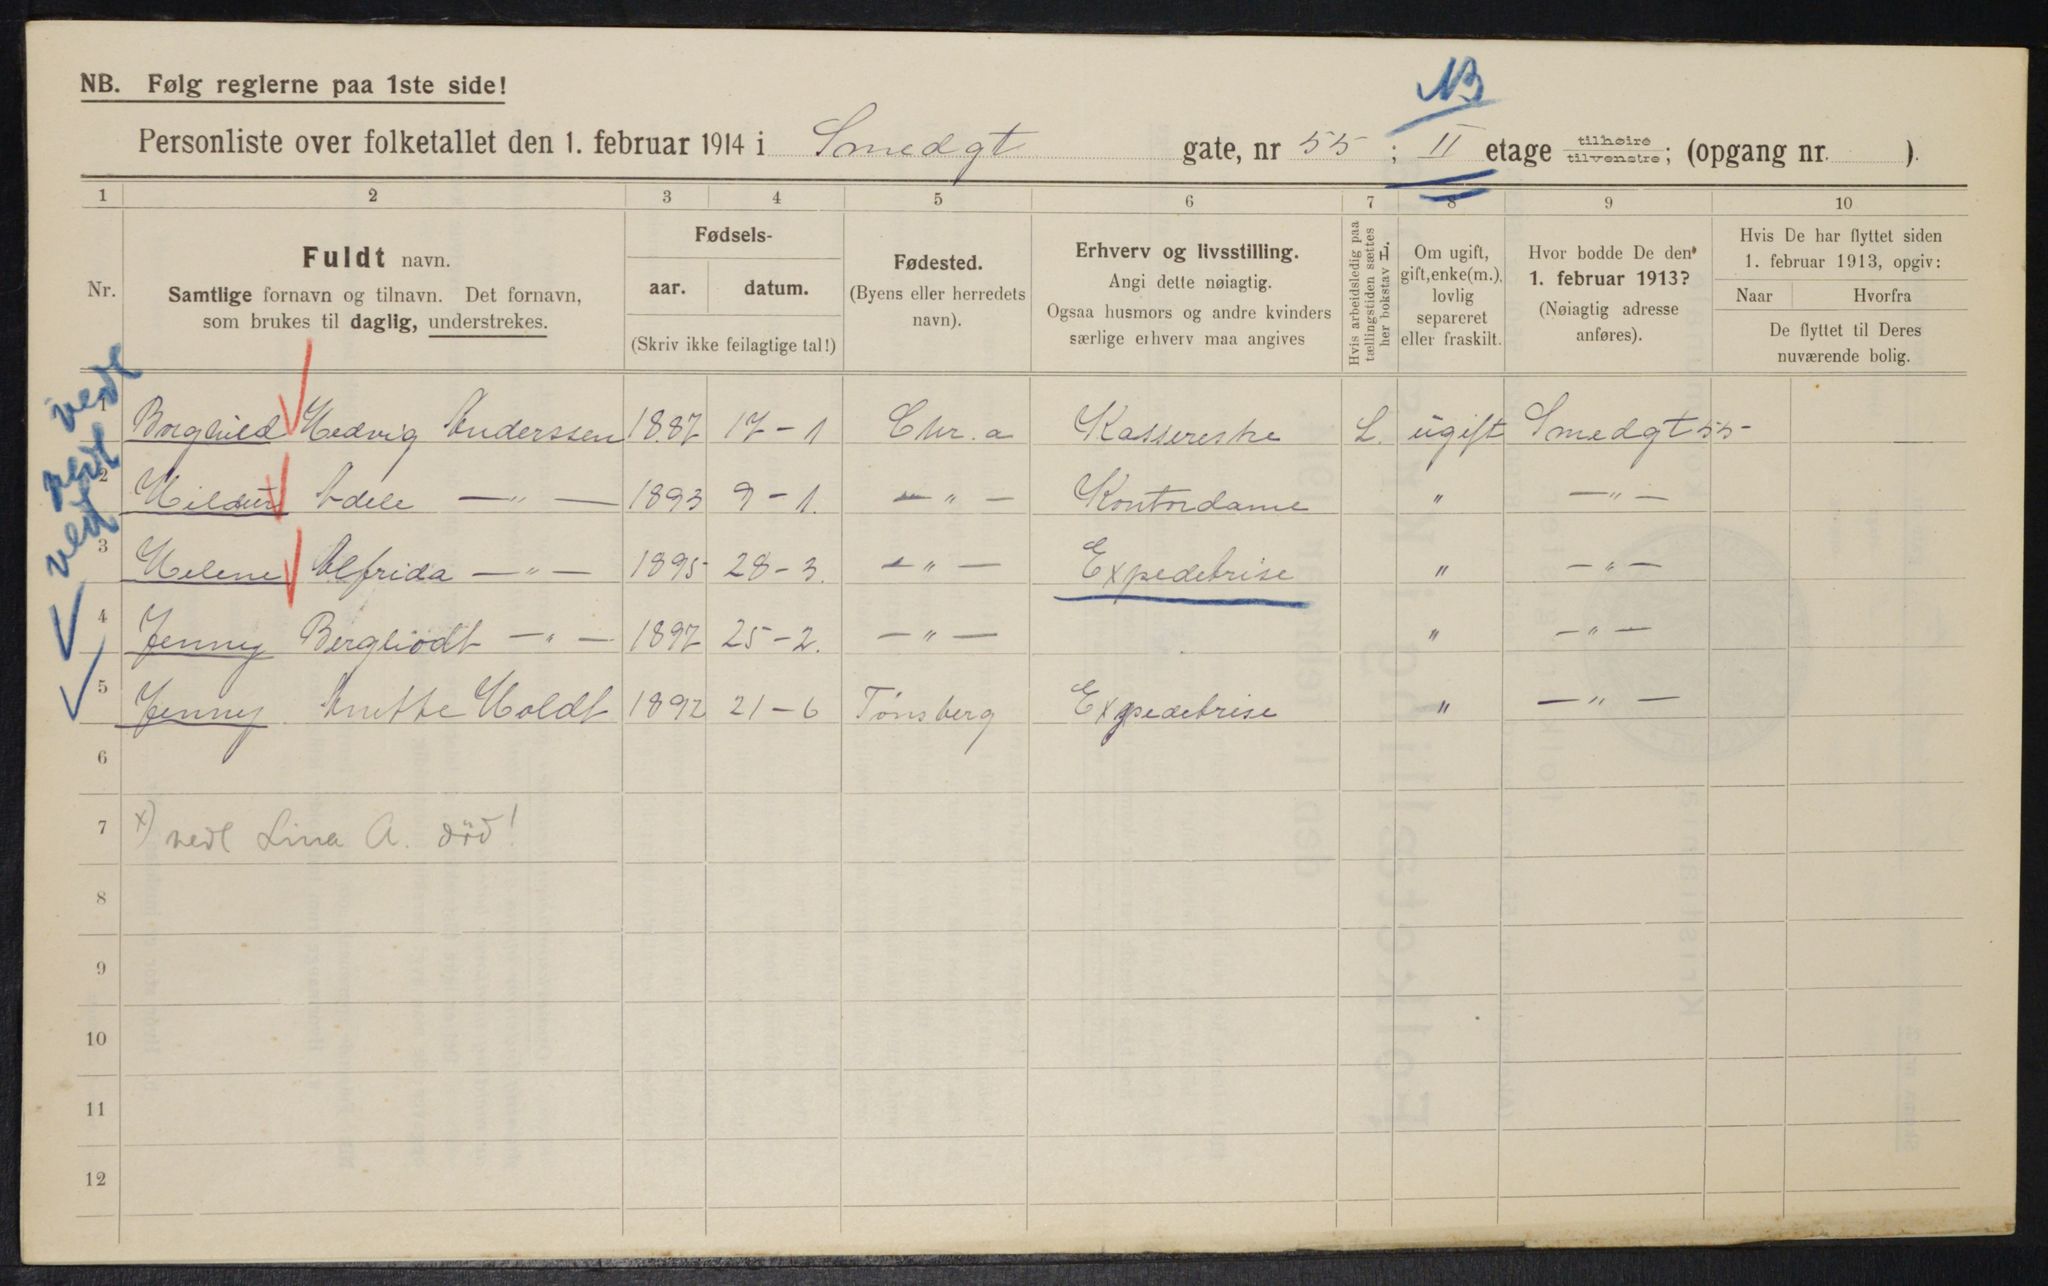 NB. Følg reglerne paa 1ste side!
NB
Personliste over folketallet den 1. februar 1914 i Smedgt gate, nr 55 ; II etage tilhøire tilvenstre; (opgang nr. ).
1 2 3 4 5 6 7 8 9 10
Nr.
Fuldt navn.
Samtlige fornavn og tilnavn. Det fornavn,
som brukes til daglig, understrekes.
Fødsels-
aar. datum.
(Skriv ikke feilagtige tal!)
Fødested.
(Byens eller herredets
navn).
Erhverv og livsstilling.
Angi dette nøiagtig.
Ogsaa husmors og andre kvinders
særlige erhverv maa angives
Hvis arbeidsledig paa
tællingstiden sættes
her bokstav L.
Om ugift,
gift, enke(m.),
lovlig
separeret
eller fraskilt.
Hvor bodde De den
1. februar 1913?
(Nøiagtig adresse
anføres).
Hvis De har flyttet siden
1. februar 1913, opgiv:
Naar Hvorfra
De flyttet til Deres
nuværende bolig.
vedl
1 Borghild Hedvig Anderssen 1887 17-1 Chr.a Kassereske L. ugift Smedgt 55
vedl
2 Hildur Adele —"— 1893 9-1. —"— Kontordame " —"—
vedl
3 Helene Alfrida —"— 1895 28-3. —"— Expedetrise " —"—
4 Jenny Bergliodt —"— 1897 25-2. —"— " —"—
5 Jenny Anette Holdt 1892 21-6 Tønsberg Expedetrise " —"—
6
7 x) vedl Lina A. død!
8
9
10
11
12